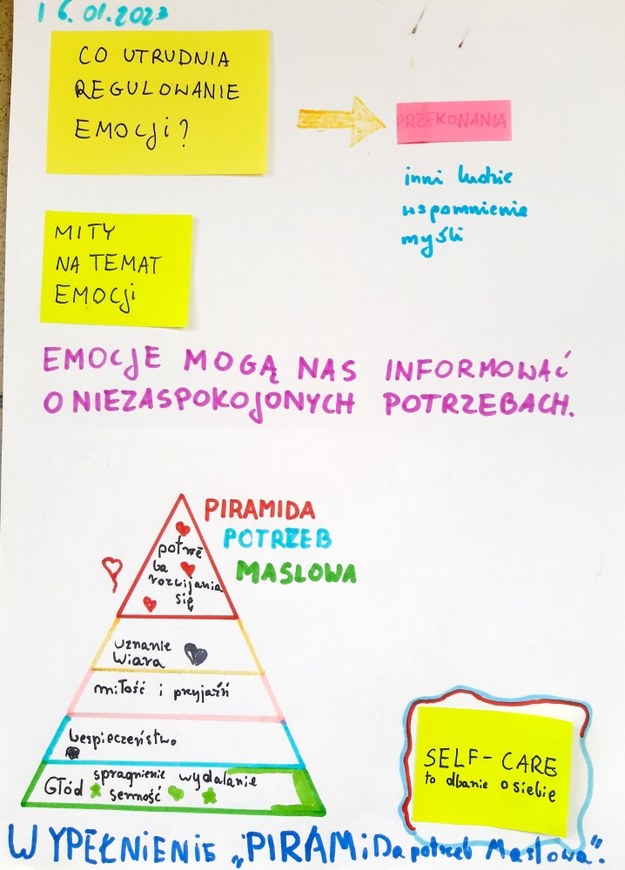 16.01.2023
CO UTRUDNIA
REGULOWANIE
EMOCJI?
PRZEKONANIA
inni ludzie
wspomnienie
myśli
MITY
NA TEMAT
EMOCJI
EMOCJE MOGĄ NAS INFORMOWAĆ
O NIEZASPOKOJONYCH POTRZEBACH.
PIRAMIDA
POTRZEB
MASLOWA
potrze
ba
rozwijania
się
uznanie
wiara
miłość i przyjaźń
bespieczeństwo
spragnienie wydalanie
Głód senność
SELF-CARE
to dbanie o siebie
WYPEŁNIENIE „PIRAMiDa potrzeb Maslowa".